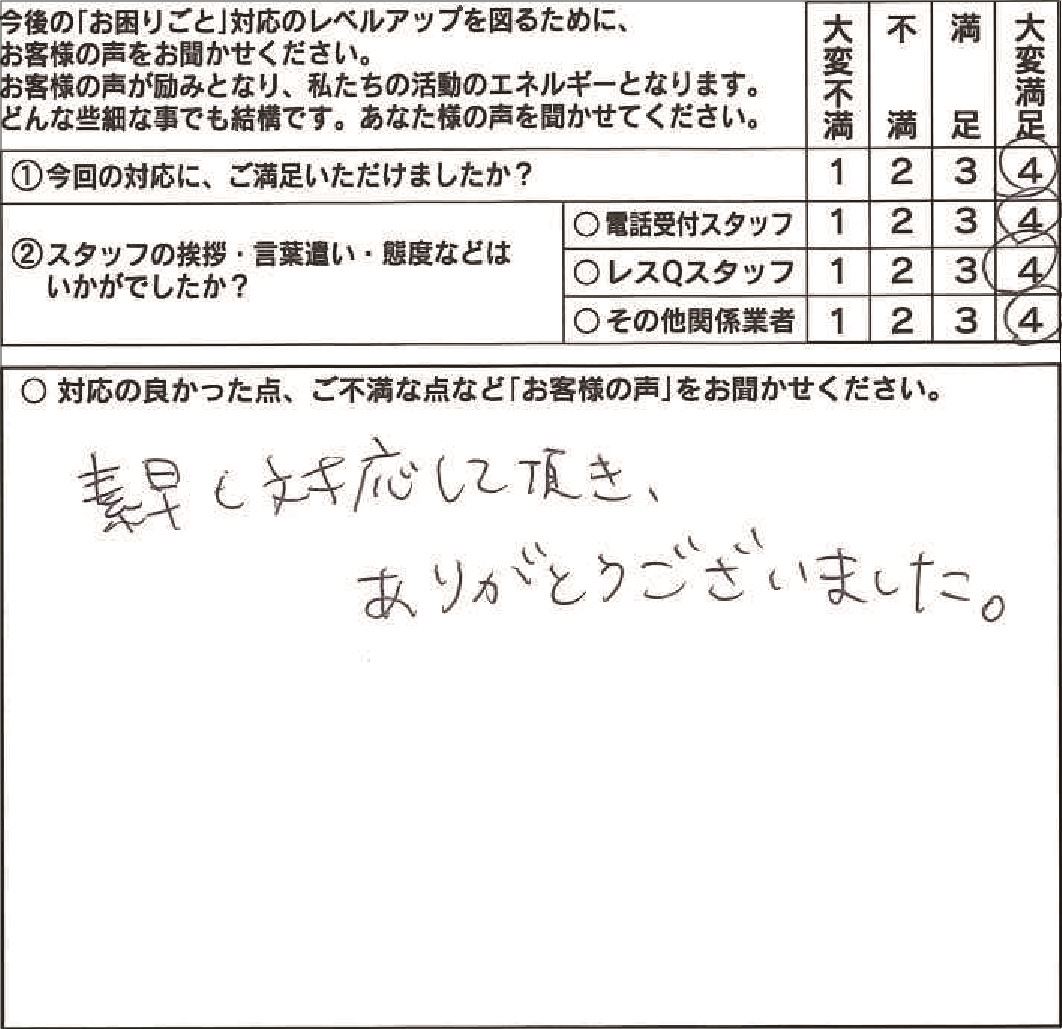 今後の「お困りごと」対応のレベルアップを図るために、
お客様の声をお聞かせください。
お客様の声が励みとなり、私たちの活動のエネルギーとなります。
どんな些細な事でも結構です。あなた様の声を聞かせてください。
大変不満 不満 満足 大変満足
①今回の対応に、ご満足いただけましたか？ 1 2 3 4
②スタッフの挨拶・言葉遣い・態度などは
いかがでしたか？
○電話受付スタッフ 1 2 3 4
○レスQスタッフ 1 2 3 4
○その他関係業者 1 2 3 4
○ 対応の良かった点、ご不満な点など「お客様の声」をお聞かせください。
素早く対応して頂き、
ありがとうございました。